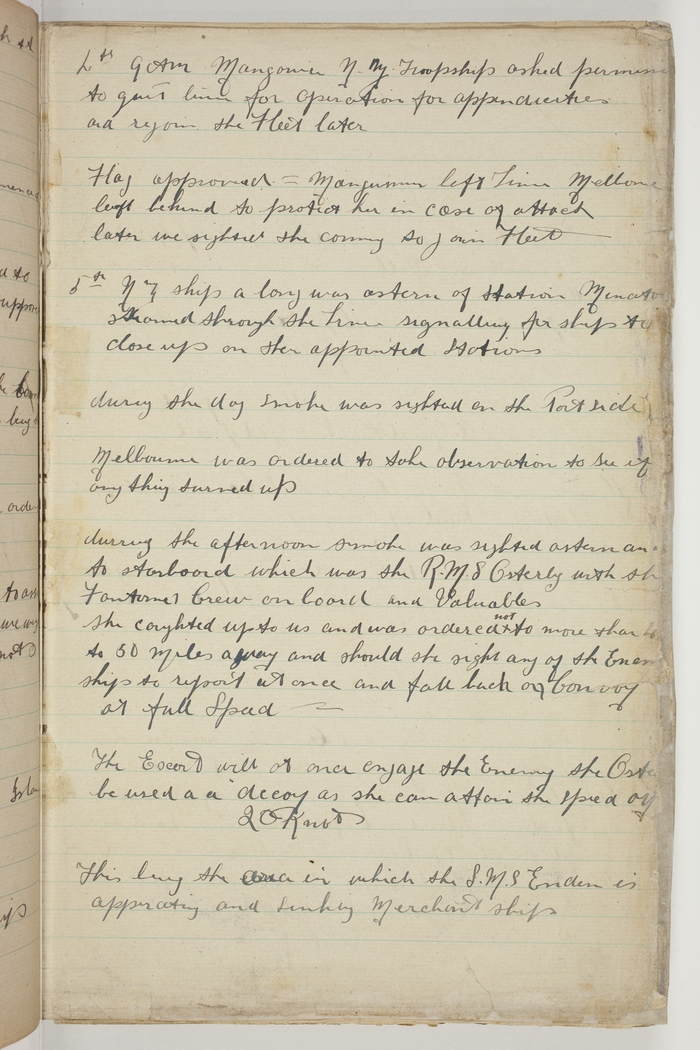 4th 9 am Mangonui N. Zy. Troopship asked permiss
to quit line for operation for appendicities
and rejoin the Fleet later
Flag approved = Mangunui left Line Melbone
left behind to protect her in case of attack
later we sighted she coming to join Fleet
5th N Z ships a long was astern of Station Minatou
steamed through the Line signalling for ships to
close up on ther appointed Stations
during the day smoke was sighted on the Port side
Melbourne was ordered to take observation to see if
any thing turned up
durring the afternoon smoke was sighted astern an
to starboard which was the R.M.S Osterly with th
Crew on board and Valuables
she caughted up to us and was ordered not to more than
to 50 miles away and should she sight any of the Enem
ship to report at once and fall back on Convoy
at full Speed
The Escort will at once engage the Enemy the Oste
be used a a decoy as she can attain the speed of
20 Knots
This being the area in which the S.M.S Emden is
apperating and sinking Merchant ships